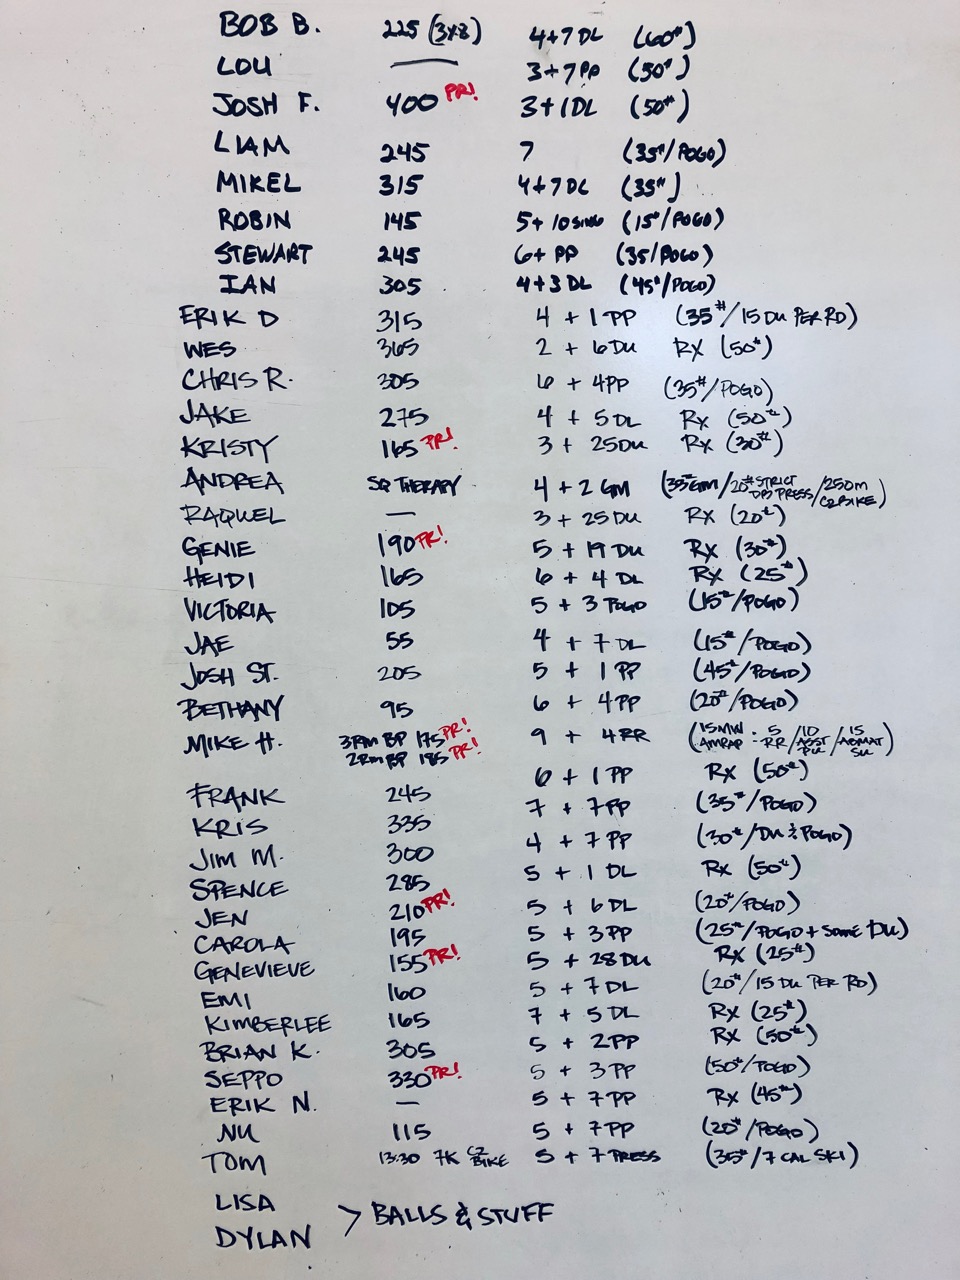 BOB B. 225 (3x8) 4+7 DL (60#)
LOU — 3+7 PP (50#)
JOSH F. 400 PR! 3+1 DL (50#)
LIAM 245 7 (35#/POGO)
MIKEL 315 4+7 DL (35#)
ROBIN 145 5+10 SING (15#/POGO)
STEWART 245 6+ PP (35/POGO)
IAN 305 4+3 DL (45#/POGO)
ERIK D 315 4 + 1 PP (35#/15 DU PER RD)
WES 365 2 + 6 DU RX (50#)
CHRIS R. 305 6 + 4PP (35#/POGO)
JAKE 275 4 + 5 DL RX (50#)
KRISTY 165 PR! 3 + 25DU RX (30#)
ANDREA SQ THERAPY 4 + 2 GM (35#GM/20# STRICT DB PRESS/250m C2BIKE)
RAQUEL — 3 + 25 DU RX (20#)
GENIE 190 PR! 5 + 19 DU RX (30#)
HEIDI 165 6 + 4 DL RX (25#)
VICTORIA 105 5 + 3 POGO (15#/POGO)
JAE 55 4 + 7 DL (15#/POGO)
JOSH ST. 205 5 + 1 PP (45#/POGO)
BETHANY 95 6 + 4PP (20#/POGO)
MIKE H. 3RM BP 175 PR! 9 + 4 RR (15MIN AMRAP: 5 RR/10 ASST PU/15 ABMAT SU)
2RM BP 185 PR!
FRANK 245 6 + 1 PP RX (50#)
KRIS 335 7 + 7PP (35#/POGO)
JIM M. 300 4 + 7 PP (30#/DU & POGO)
SPENCE 285 5 + 1 DL RX (50#)
JEN 210 PR! 5 + 6 DL (20#/POGO)
CAROLA 195 5 + 3 PP (25#/POGO + SOME DU)
GENEVIEVE 155 PR! 5 + 28 DU RX (25#)
EMI 160 5 + 7 DL (20#/15 DU PER RD)
KIMBERLEE 165 7 + 5 DL RX (25#)
BRIAN K. 305 5 + 2PP RX (50#)
SEPPO 330 PR! 5 + 3 PP (50#/POGO)
ERIK N. — 5 + 7 PP RX (45#)
NU 115 5 + 7 PP (20#/POGO)
TOM 13:30 7K C2 BIKE 5 + 7 PRESS (35#/7 CAL SKI)
LISA
DYLAN > BALLS & STUFF